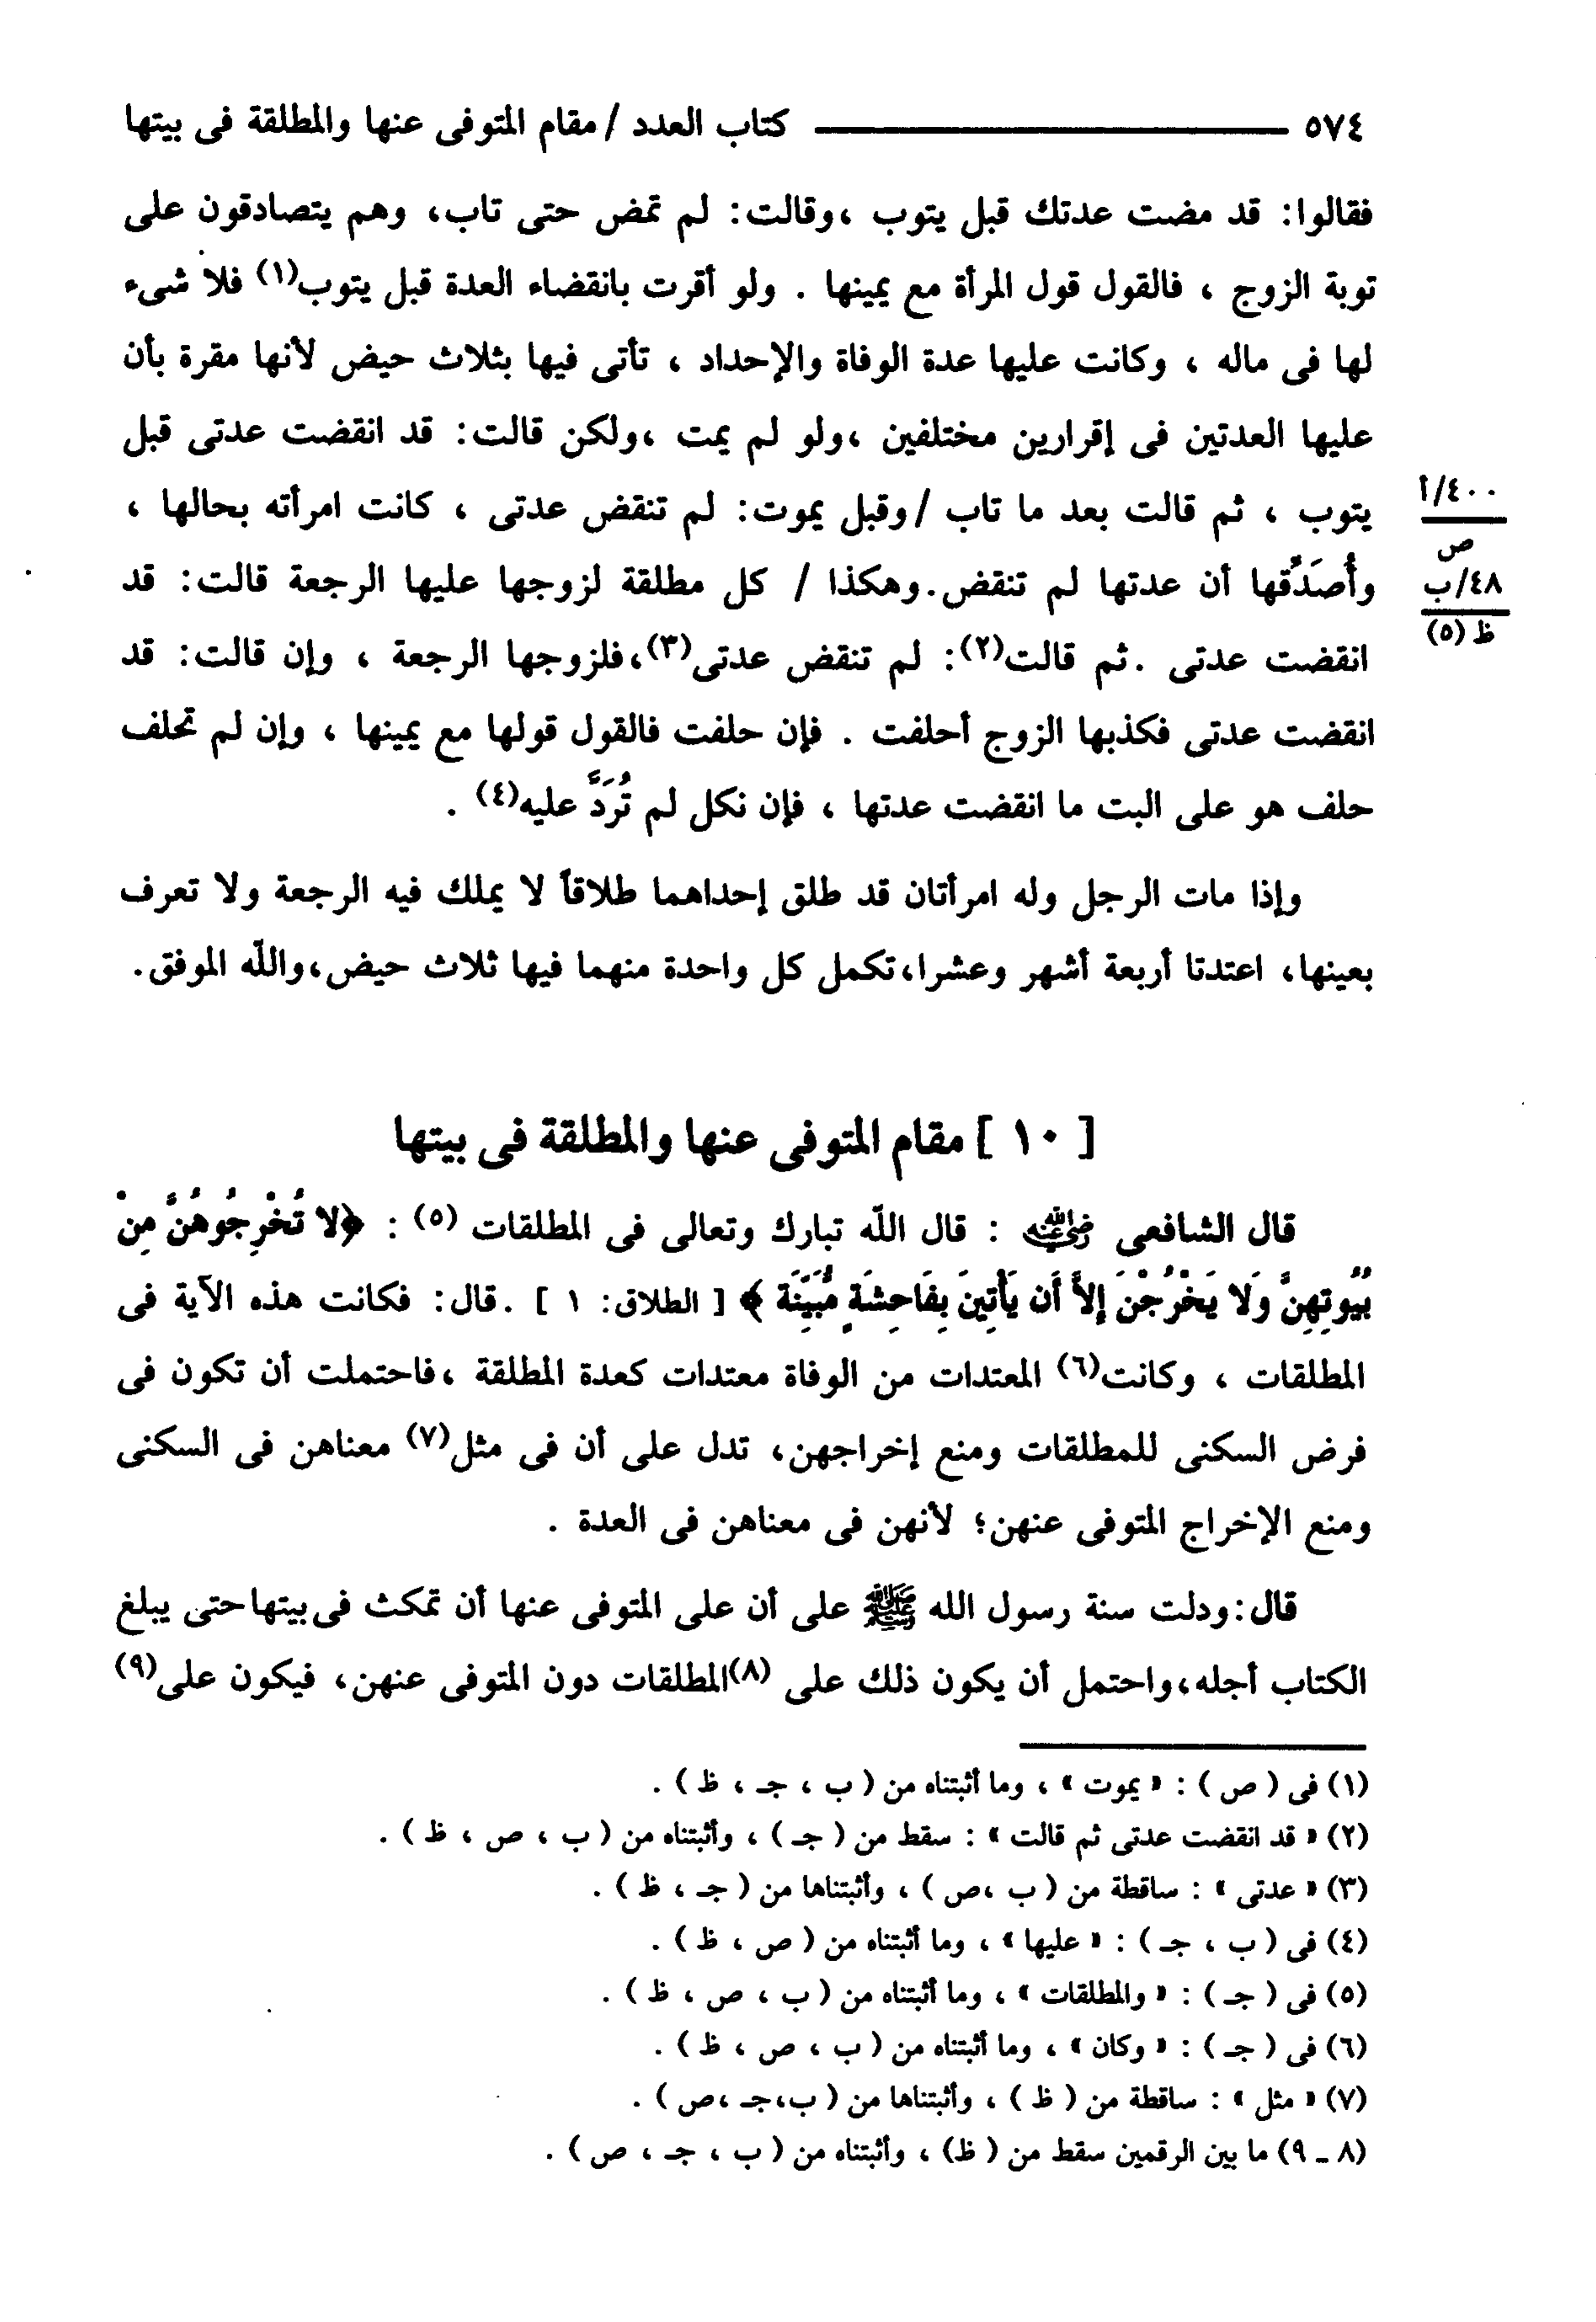 ٥٧٤ ــــــــــــــــــ كتاب العدد / مقام المتوفى عنها والمطلقة فى بيتها
فقالوا: قد مضت عدتك قبل يتوب ،وقالت: لم تمض حتى تاب، وهم يتصادقون على
توبة الزوج ، فالقول قول المرأة مع يمينها . ولو أقرت بانقضاء العدة قبل يتوب(١) فلا شىء
لها فى ماله ، وكانت عليها عدة الوفاة والإحداد ، تأتى فيها بثلاث حيض لأنها مقرة بأن
عليها العدتين فى إقرارين مختلفين ،ولو لم يمت ،ولكن قالت: قد انقضت عدتى قبل
يتوب ، ثم قالت بعد ما تاب /وقبل يموت: لم تنقض عدتى ، كانت امرأته بحالها ،
٤٠٠/أ
ص
وأُصَدِّقها أن عدتها لم تنقض.وهكذا / كل مطلقة لزوجها عليها الرجعة قالت: قد
٤٨/ب
ظ (٥)
انقضت عدتى .ثم قالت(٢): لم تنقض عدتى(٣)،فلزوجها الرجعة ، وإن قالت: قد
انقضت عدتى فكذبها الزوج أحلفت . فإن حلفت فالقول قولها مع يمينها ، وإن لم تحلف
حلف هو على البت ما انقضت عدتها ، فإن نكل لم تُرَدَّ عليه(٤) .
وإذا مات الرجل وله امرأتان قد طلق إحداهما طلاقاً لا يملك فيه الرجعة ولا تعرف
بعينها، اعتدتا أربعة أشهر وعشرا،تكمل كل واحدة منهما فيها ثلاث حيض،والله الموفق.
[ ١٠ ] مقام المتوفى عنها والمطلقة فى بيتها
قال الشافعى رضي الله عنه : قال الله تبارك وتعالى فى المطلقات (٥) : ﴿لا تُخْرِجُوهُنَّ مِنْ
بُيُوتِهِنَّ وَلا يَخْرُجْنَ إِلاَّ أَن يَأْتِينَ بِفَاحِشَةٍ مُّبَيِّنَة ﴾ [ الطلاق: ١ ] .قال: فكانت هذه الآية فى
المطلقات ، وكانت(٦) المعتدات من الوفاة معتدات كعدة المطلقة ،فاحتملت أن تكون فى
فرض السكنى للمطلقات ومنع إخراجهن، تدل على أن فى مثل(٧) معناهن فى السكنى
ومنع الإخراج المتوفى عنهن؛ لأنهن فى معناهن فى العدة .
قال:ودلت سنة رسول الله ﷺ على أن على المتوفى عنها أن تمكث فى بيتها حتى يبلغ
الكتاب أجله،واحتمل أن يكون ذلك على (٨)المطلقات دون المتوفى عنهن، فيكون على(٩)
(١) فى ( ص ) : « يموت » ، وما أثبتناه من ( ب ، جـ ، ظ ) .
(٢) « قد انقضت عدتى ثم قالت » : سقط من ( جـ ) ، وأثبتناه من ( ب ، ص ، ظ ) .
(٣) « عدتى » : ساقطة من ( ب ،ص ) ، وأثبتناها من ( جـ ، ظ ) .
(٤) فى ( ب ، جـ ) : « عليها » ، وما أثبتناه من ( ص ، ظ ) .
(٥) فى ( جـ ) : « والمطلقات » ، وما أثبتناه من ( ب ، ص ، ظ ) .
(٦) فى ( جـ ) : « وكان » ، وما أثبتناه من ( ب ، ص ، ظ ) .
(٧) « مثل » : ساقطة من ( ظ ) ، وأثبتناها من ( ب،جـ ،ص ) .
(٨ ـ ٩) ما بين الرقمين سقط من ( ظ) ، وأثبتناه من ( ب ، جـ ، ص ) .